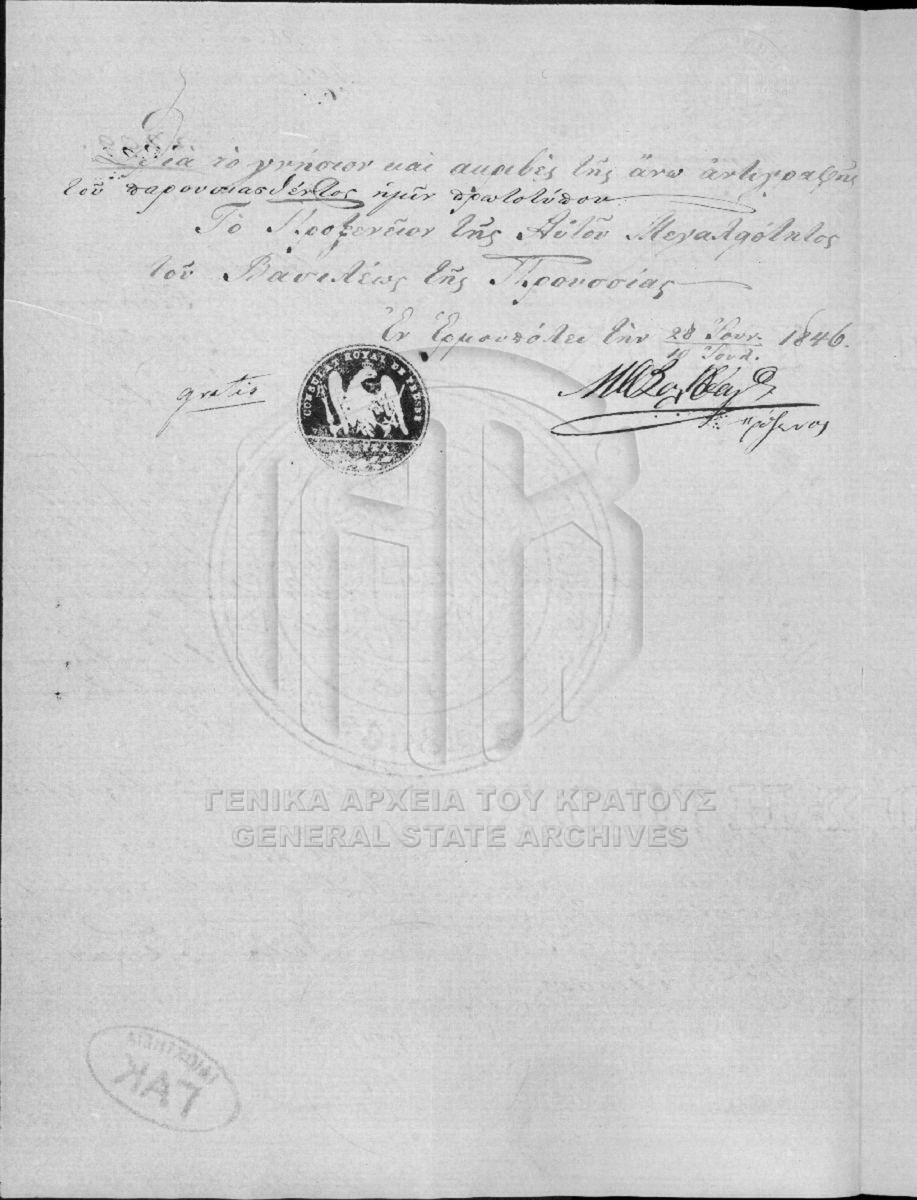 Διὰ τὸ γνήσιον καὶ ακριβὲς τῆς ἄνω ἀντιγραφῆς
τοῦ παρουσιασθέντος ἡμῖν πρωτοτύπου
Τὸ Προξενεῖον τῆς Αὑτοῦ Μεγαλειότητος
τοῦ Βασιλέως τῆς Προυσσίας
Ἐν Ἑρμουπόλει τὴν 28 Ἰουν. 1846.
10 Ἰουλ.
gratis
CONSULAT ROYAL DE PRUSSE
πρόξενος
ΓΕΝΙΚΑ ΑΡΧΕΙΑ ΤΟΥ ΚΡΑΤΟΥΣ
GENERAL STATE ARCHIVES
ΓΑΚ